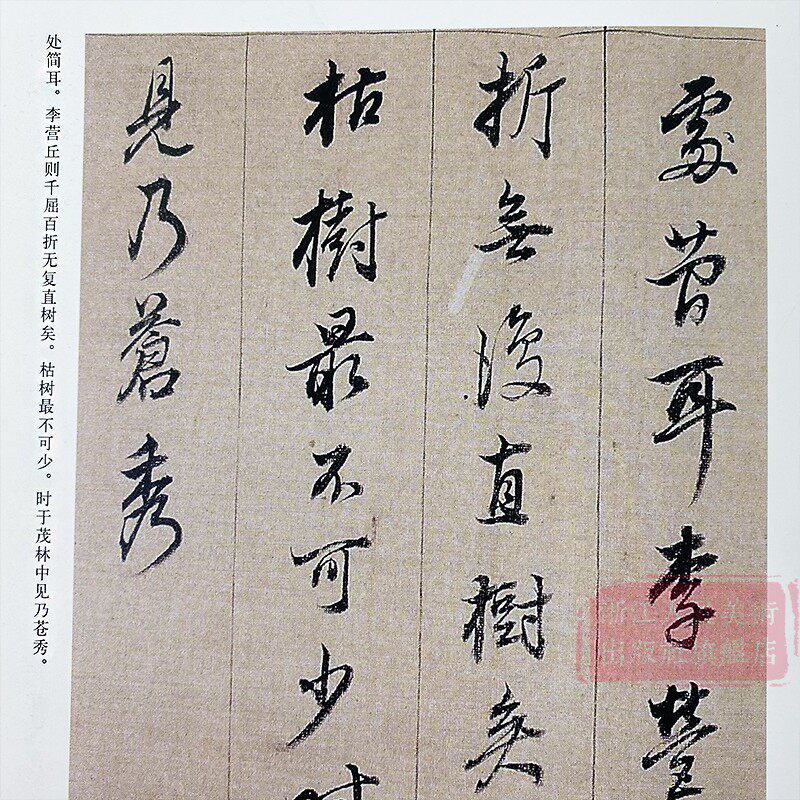 處簡耳李營
折無復直樹矣
枯樹最不可少時
見乃蒼秀
处简耳。李营丘则千屈百折无复直树矣。枯树最不可少。时于茂林中见乃苍秀。
出版社旗舰店